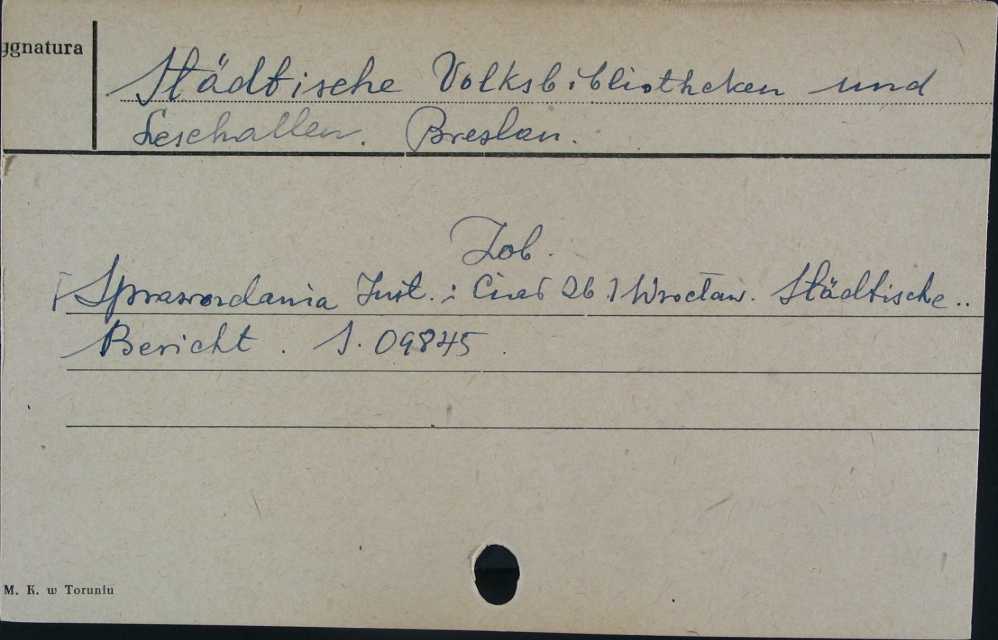 ygnatura
Städtische Volksbibliotheken und
Lesehallen. Breslau.
Zob.
Sprawozdania Inst.: 26 Wrocław. Städtische..
Bericht. S. 09845.
M. K. w Toruniu